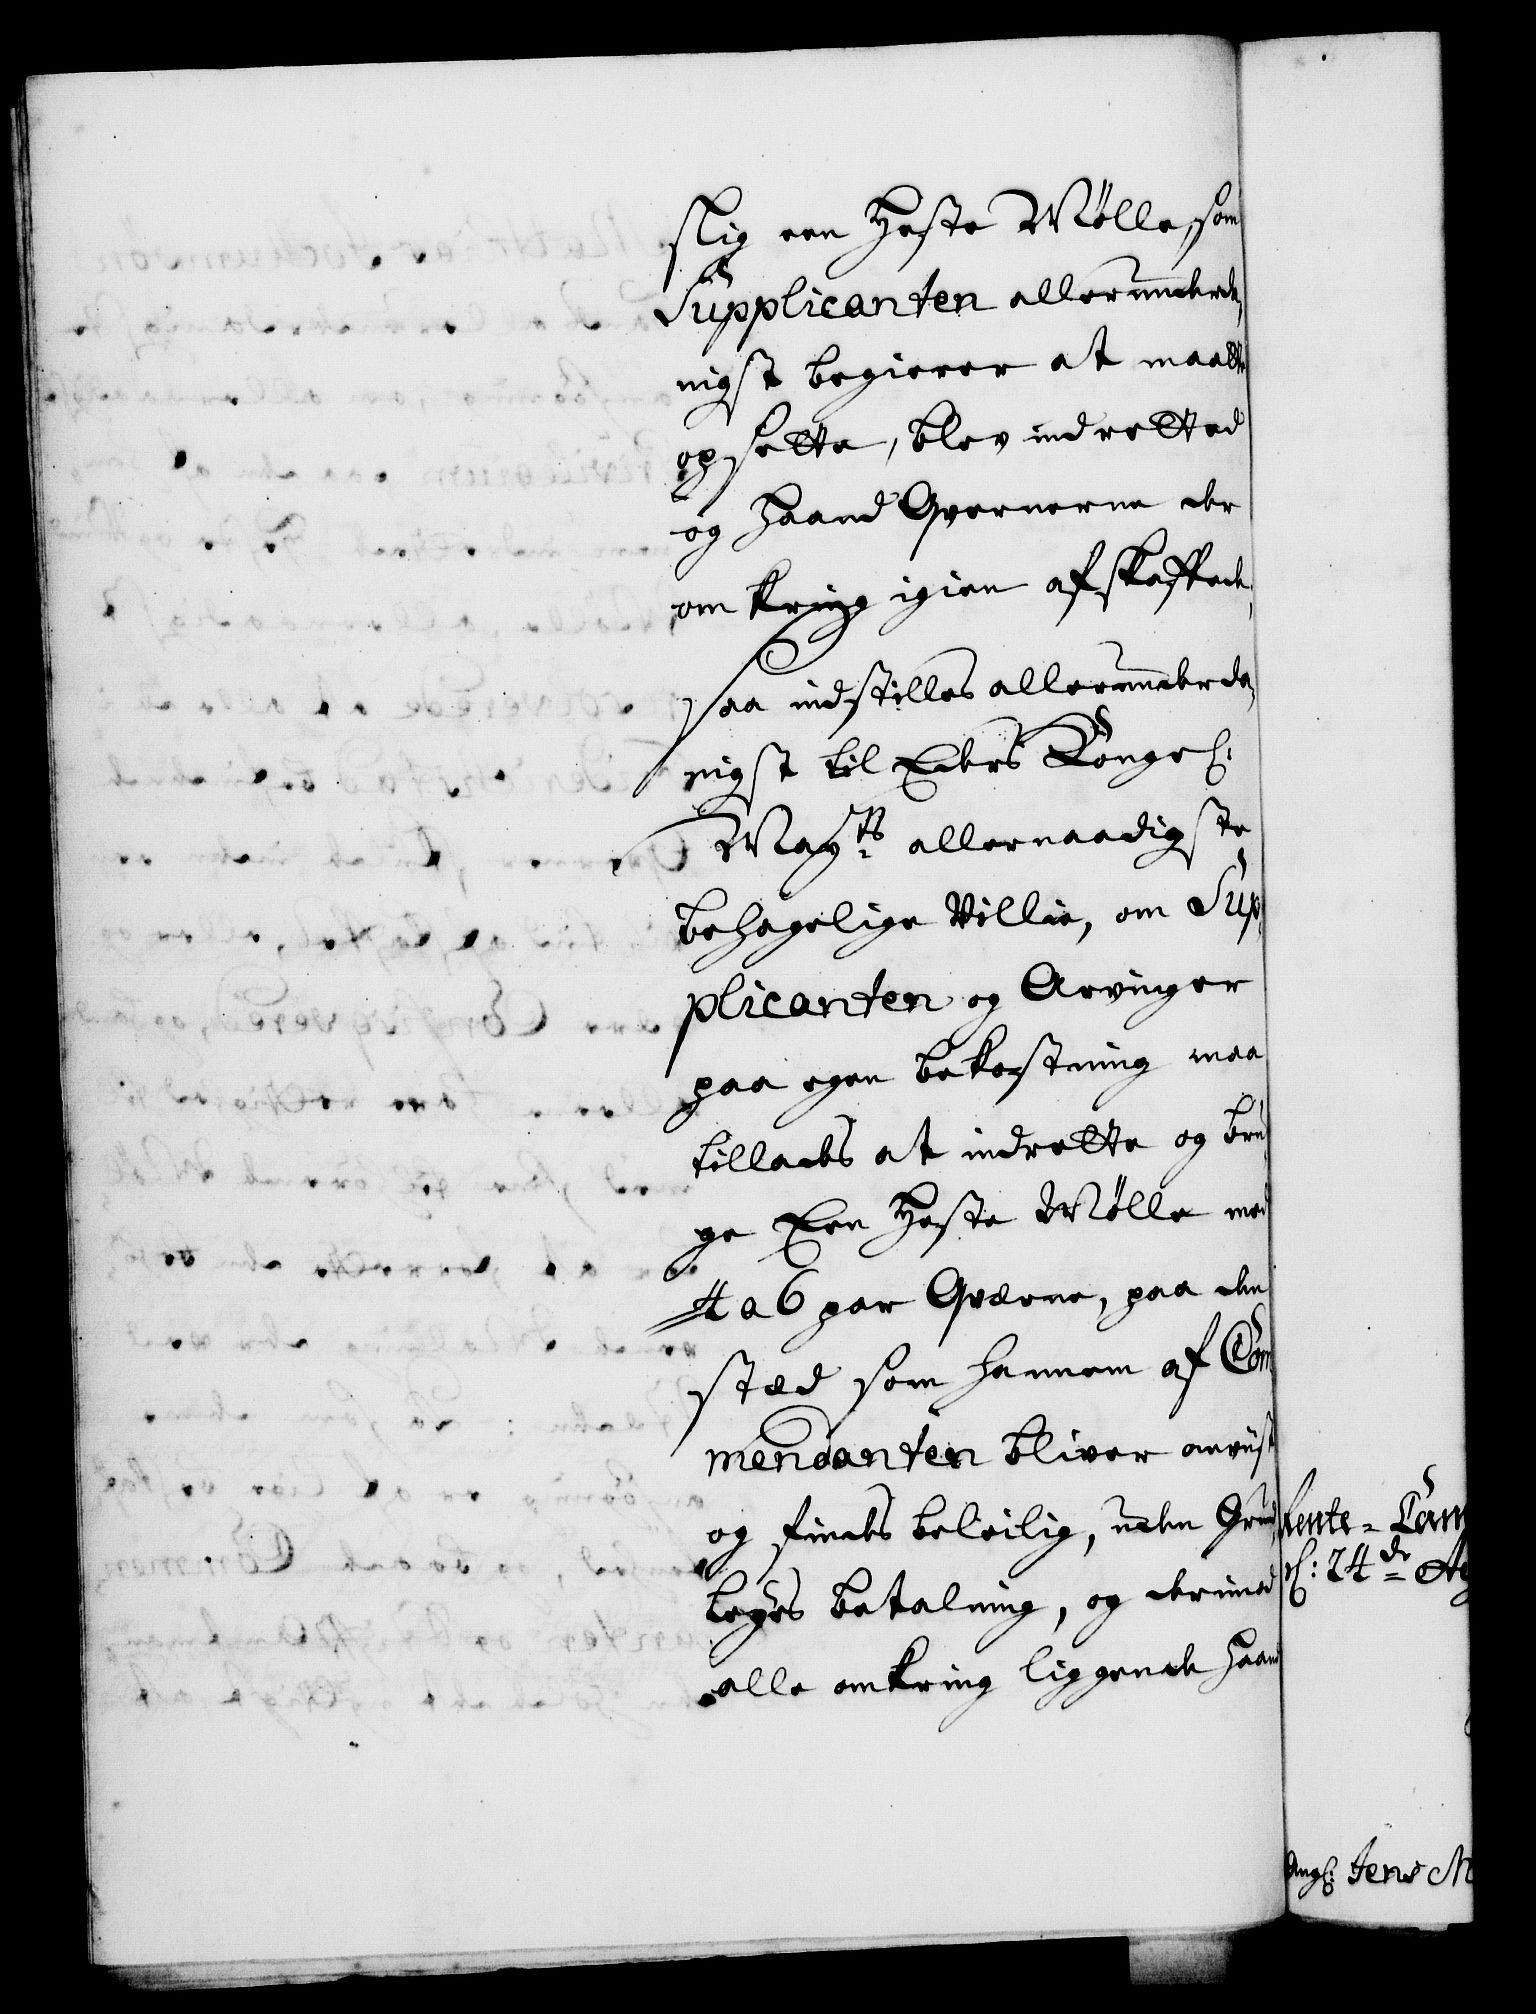 slig een Heste Mølle, som
Supplicanten allerunderda,
nigst begierer at maatte
opsette, blev indretted
og Haand Qvernerne der
omkring igien afskaffede,
saa indstilles allerunderda,
nigst til Eders Kongel:
May:ts allernaadigste
behagelige Villie, om Sup,
plicanten og Arvinger
paa egen bekostning maa
tillades at indrette og bru,
ge Een Heste Mølle med
4 a 6 par Qværne, paa den
stæd som hannem af Com
mendanten bliver anviist
og findes beleilig, uden Grund
leyes betalning, og derimod
alle omkring liggende Haand
Rente-Cam
d: 24de
Jens M